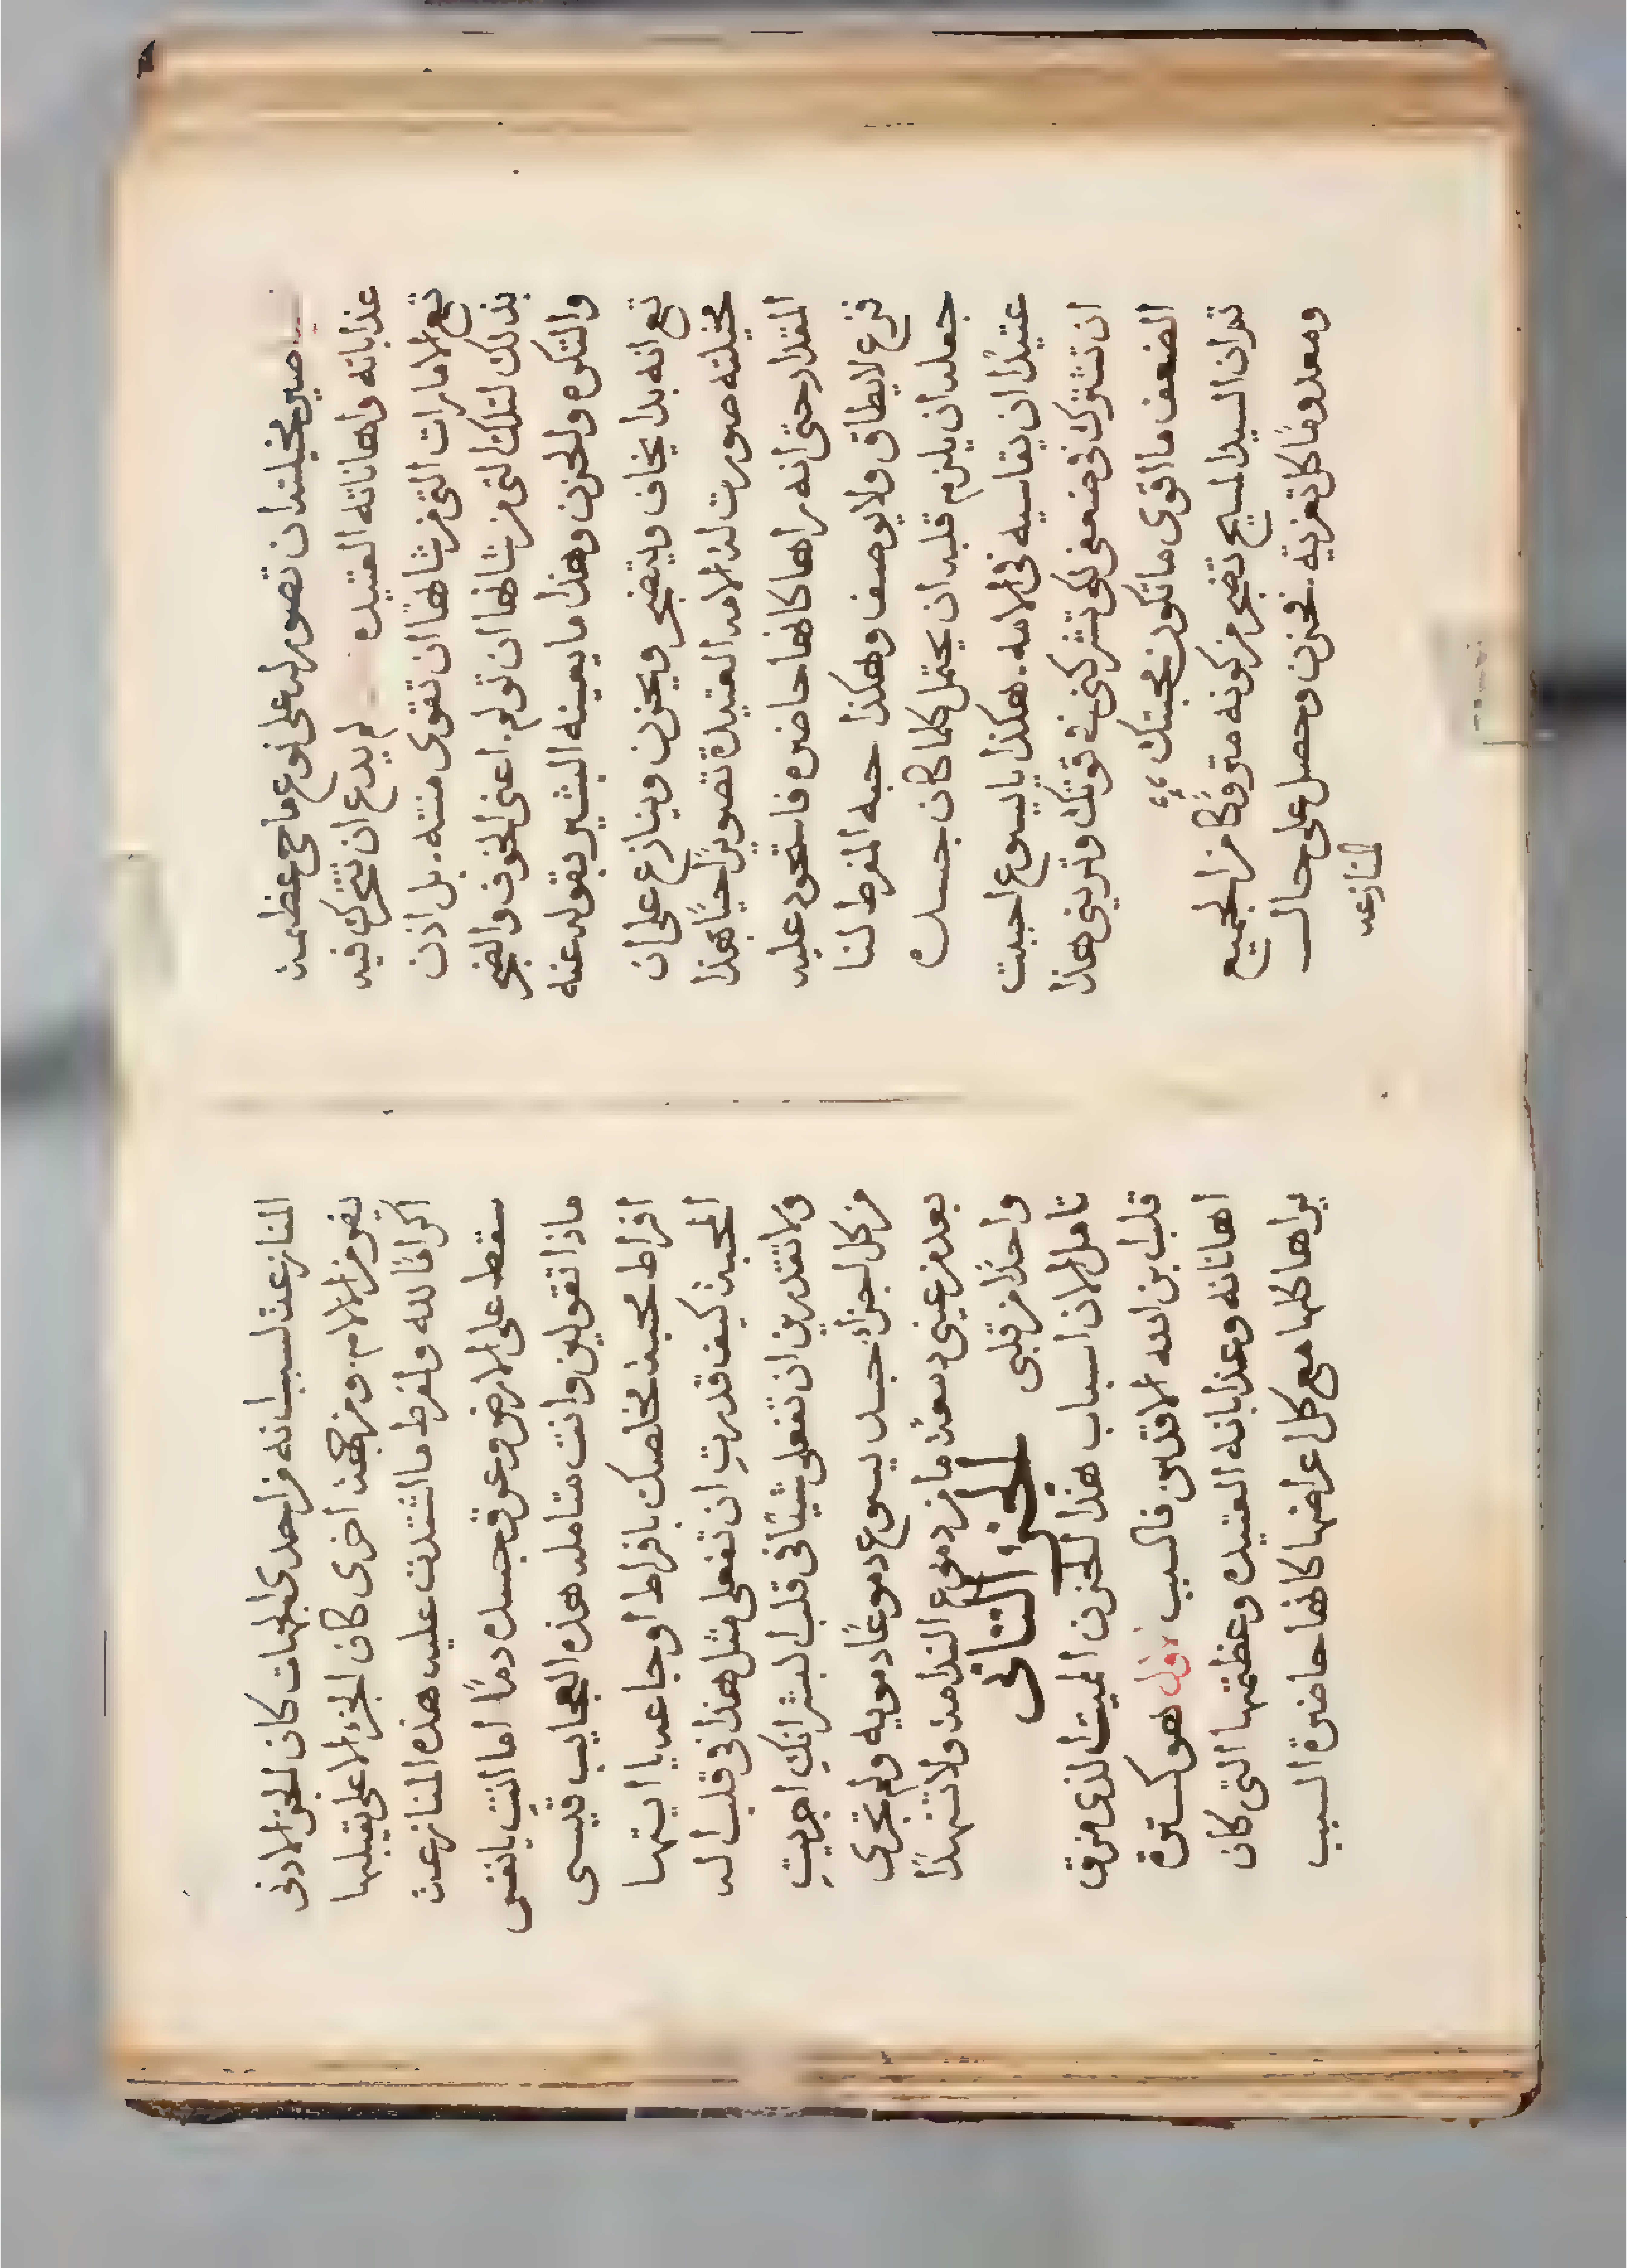 صير مخيلته ان تصور له على نوع ما حي عظمة
عذاباته واهاناته العتيده لم يدع ان تتحرك فيه
تبع الامارات التي من شانها ان تقوى منته. بل اذن
بذلك لتلك التي من شانها ان تولم. اعني الخوف والضجر
والتكره والحزن وهذا ما يعينه البشير بقوله عنه
تع انه بدا يخاف ويتضجر ويحزن وينازع على ان
مخيلته صورت له الامه العتيدة تصويرًا حيًا بهذا
المقدار حتى انه راها كانها حاضره فاستحود عليه
فزع لا يطاق ولا يوصف وهكذا حبه المفرط لنا
جعله ان يلزم قلبه ان يحتمل كلما كان جسده
عتيدًا ان يقاسيه في الامه. هكذا يا يسوع احببت
ان تشترك في ضعفي لكي تشركني في قوتك وتريني هذا
الضعف ما اقوى ما تكون محبتك
تران السيد المسيح تضجر من كونه متروكًا من الجميع
ومعدومًا كل تعزية. فحزن وحصل على حال
المنازعه
المنازعة لسبب انه من احدى الجهات كان الجزء الادنى
يفر من الالام. ومن جهة اخرى كان الجزء الاعلى يقبلها
اكرامًا لله ولفرط ما اشتدت عليه هذه المنازعة
سقط على الارض وعرق جسده دمًا اما انتِ يا نفس
ماذا تقولين وانت متامله هذه العجايب قيسى
افراط محبة مخلصك بافراط اوجاعه يا ايتها
المحبة كيف قدرتِ ان تفعلى مثل هذا في قلب اله
ولا تقدرين ان تفعلى شيئًا في قلب البشر انكِ اجريتِ
من كل اجزاء جسد يسوع دموعًا دمويه ولم تجرى
بعد من عيني دمعةً ما من دموع الندامة ولا تنهدًا
واحدًا من قلبى الحزن الثانى
تامل الان اسباب هذا الحزن المميت الذى مزق
قلب ابن الله الاقدس فالسبب الاول هو كسترة
اهاناته وعذاباته العتيده وعظمتها التى كان
يراها كلها مع كل اعراضها كانها حاضرة السبب